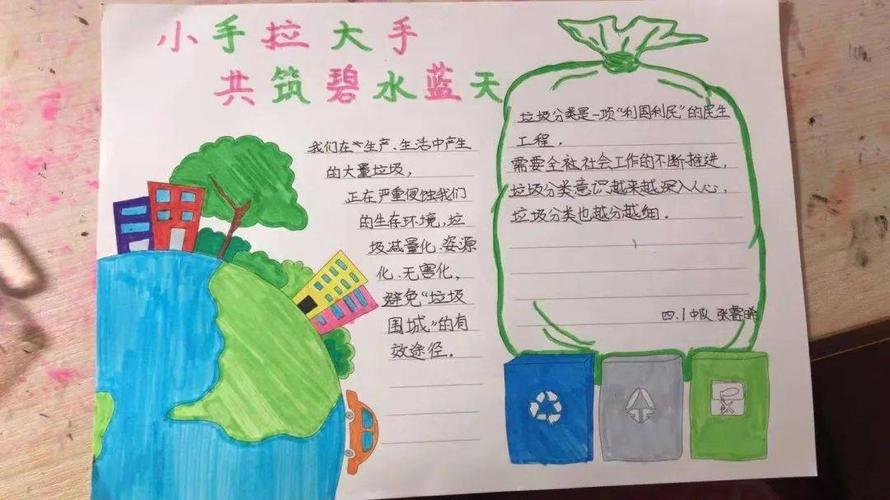 小手拉大手
共筑碧水蓝天
我们在生产、生活中产生
的大量垃圾，
正在严重侵蚀我们
的生存环境，垃
圾减量化、资源
化、无害化，
避免“垃圾
围城”的有
效途径。
垃圾分类是一项“利国利民”的民生
工程，
需要全社社会工作的不断推进，
垃圾分类意识越来越深入人心，
垃圾分类也越分越细。
四.1中队 张